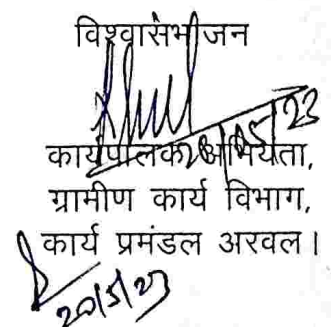 विश्वासभाजन
20/05/23
कार्यपालक अभियंता,
ग्रामीण कार्य विभाग,
कार्य प्रमंडल अरवल।
20/5/23